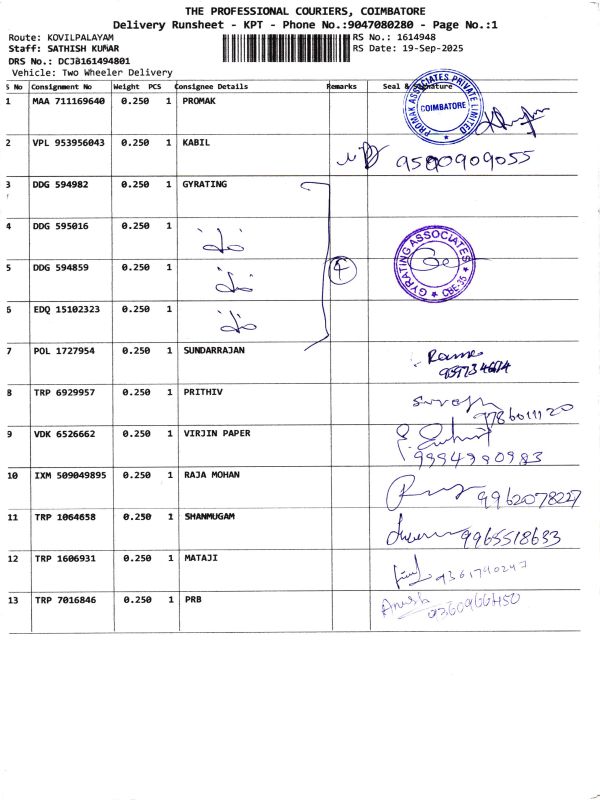 THE PROFESSIONAL COURIERS, COIMBATORE
Delivery Runsheet - KPT - Phone No.:9047080280 - Page No.:1
Route: KOVILPALAYAM
RS No.: 1614948
Staff: SATHISH KUMAR
RS Date: 19-Sep-2025
DRS No.: DCJB161494801
Vehicle: Two Wheeler Delivery
S No Consignment No Weight PCS Consignee Details Remarks Seal & Signature
1 MAA 711169640 0.250 1 PROMAK
PROMAK ASSOCIATES PRIVATE LIMITED
COIMBATORE
2 VPL 953956043 0.250 1 KABIL 9500909055
3 DDG 594982 0.250 1 GYRATING
4 DDG 595016 0.250 1
GYRATING ASSOCIATES
CBE-35
5 DDG 594859 0.250 1 4
6 EDQ 15102323 0.250 1
7 POL 1727954 0.250 1 SUNDARRAJAN
8 TRP 6929957 0.250 1 PRITHIV
9 VDK 6526662 0.250 1 VIRJIN PAPER
9994990983
10 IXM 509049895 0.250 1 RAJA MOHAN
9962078227
11 TRP 1064658 0.250 1 SHANMUGAM
9965518633
12 TRP 1606931 0.250 1 MATAJI
9361790247
13 TRP 7016846 0.250 1 PRB Anush
9360966450